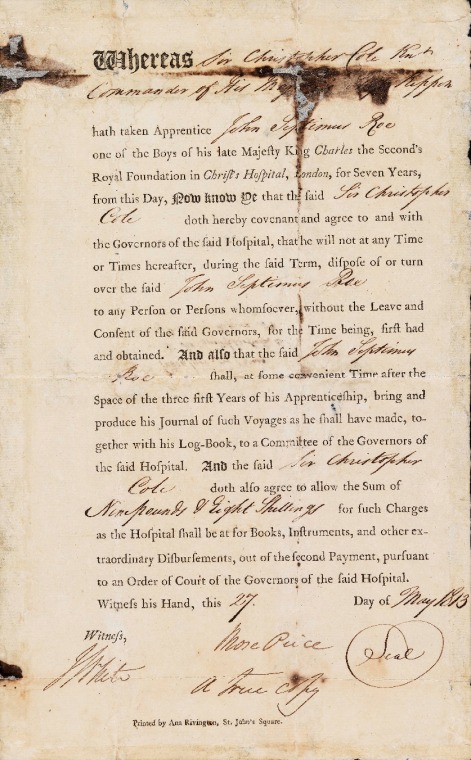 Whereas Sir Christopher Cole Knt
Commander of His
hath taken Apprentice John Septimus Roe
one of the Boys of his late Majeſty King Charles the Second's
Royal Foundation in Chriſt's Hoſpital, London, for Seven Years,
from this Day, Now know Ye that the ſaid Sir Christopher
Cole doth hereby covenant and agree to and with
the Governors of the ſaid Hoſpital, that he will not at any Time
or Times hereafter, during the ſaid Term, diſpoſe of or turn
over the ſaid John Septimus Roe
to any Perſon or Perſons whomſoever, without the Leave and
Conſent of the ſaid Governors, for the Time being, firſt had
and obtained. And alſo that the ſaid John Septimus
Roe ſhall, at ſome convenient Time after the
Space of the three firſt Years of his Apprenticeſhip, bring and
produce his Journal of ſuch Voyages as he ſhall have made, to-
gether with his Log-Book, to a Committee of the Governors of
the ſaid Hoſpital. And the ſaid Sir Christopher
Cole doth alſo agree to allow the Sum of
Nine pounds & Eight Shillings for ſuch Charges
as the Hoſpital ſhall be at for Books, Inſtruments, and other ex-
traordinary Diſburſements, out of the ſecond Payment, purſuant
to an Order of Court of the Governors of the ſaid Hoſpital.
Witneſs his Hand, this 27. Day of May 1813
Witneſs,
Price
Seal
J White
A True Copy
Printed by Ann Rivington, St. John's Square.